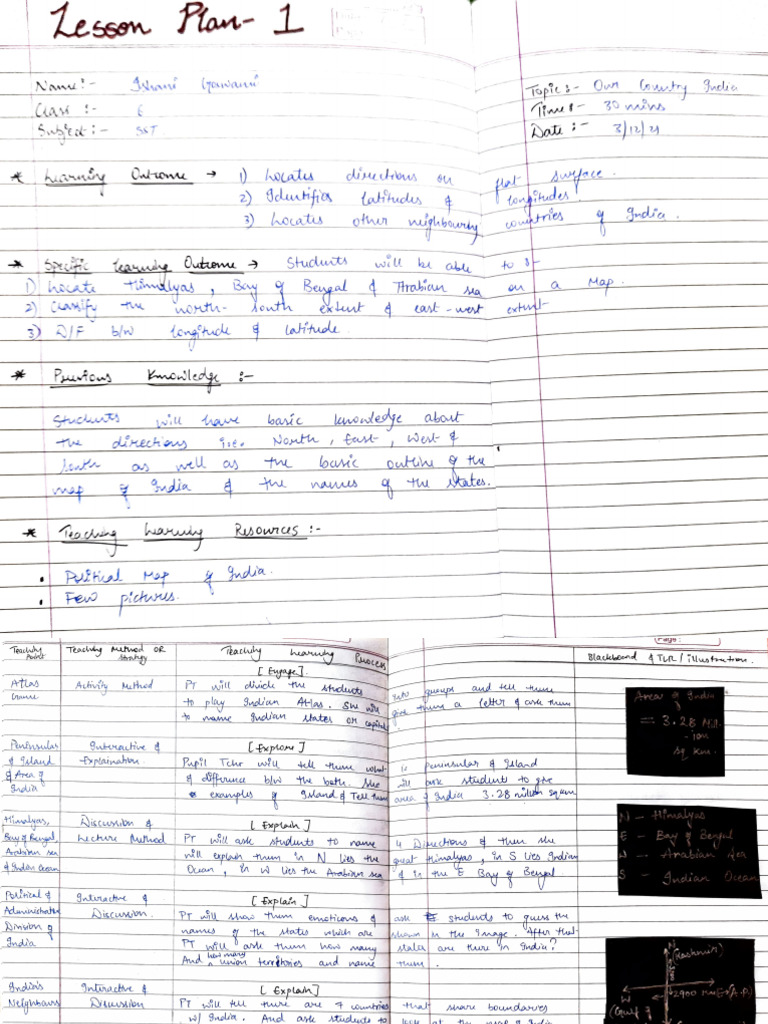 Lesson Plan- 1
Name:- Ishani Goswami
Class :- 6
Subject:- SST
Topic:- Our Country India
Time:- 30 mins
Date:- 3/12/21
* Learning Outcome → 1) Locates directions on flat surface.
2) Identifies latitudes & longitudes.
3) Locates other neighbourly countries of India.
* Specific Learning Outcome → Students will be able to :-
1) Locate Himalyas, Bay of Bengal & Arabian sea on a Map.
2) Classify the north-south extent & east-west extent
3) D/F b/w longitude & latitude.
* Previous Knowledge :-
Students will have basic knowledge about
the directions i.e. North, East, West &
South as well as the basic outline of the
map of India & the names of the states.
* Teaching Learning Resources :-
• Political Map of India.
• Few pictures.
Page:
Teaching Point
Teaching Method OR Strategy
Teaching Learning Process
Blackboard & TLR/illustration.
Atlas Game
Activity Method
[Engage]
PT will divide the students into groups and tell them
to play Indian Atlas. She will give them a letter & ask them
to name Indian states or capitals
Area of India
= 3.28 Mill-
-ion
sq km.
Peninsular
& Island
& Area of
India
Interactive &
Explaination.
[Explore]
Pupil Tchr will tell them what is peninsular & Island
& difference b/w the both. She will ask student to give
examples of Island & Tell them area of India 3.28 million square
Himalyas,
Bay of Bengal,
Arabian sea
& Indian Ocean
Discussion &
Lecture Method
[Explain]
PT will ask students to name 4 Directions & then she
will explain them in N lies the great Himalyas, in S lies Indian
Ocean, in W lies the Arabian sea & in the E Bay of Bengal
N - Himalyas
E - Bay of Bengal
W - Arabian Sea
S - Indian Ocean
Political &
Administrative
Division of
India
Interactive &
Discussion.
[Explain]
PT will show them emoticons & ask students to guess the
names of the states which are shown in the Image. After that
PT will ask them how many states are there in India?
And how many union territories and name them.
N
(Kashmir)
W
2900 km E(A.P)
(Gujt
India's
Neighbours
Interactive &
Discussion
[Explain]
PT will tell there are 7 countries that share boundaries
w/ India. And ask students to look at the map of India